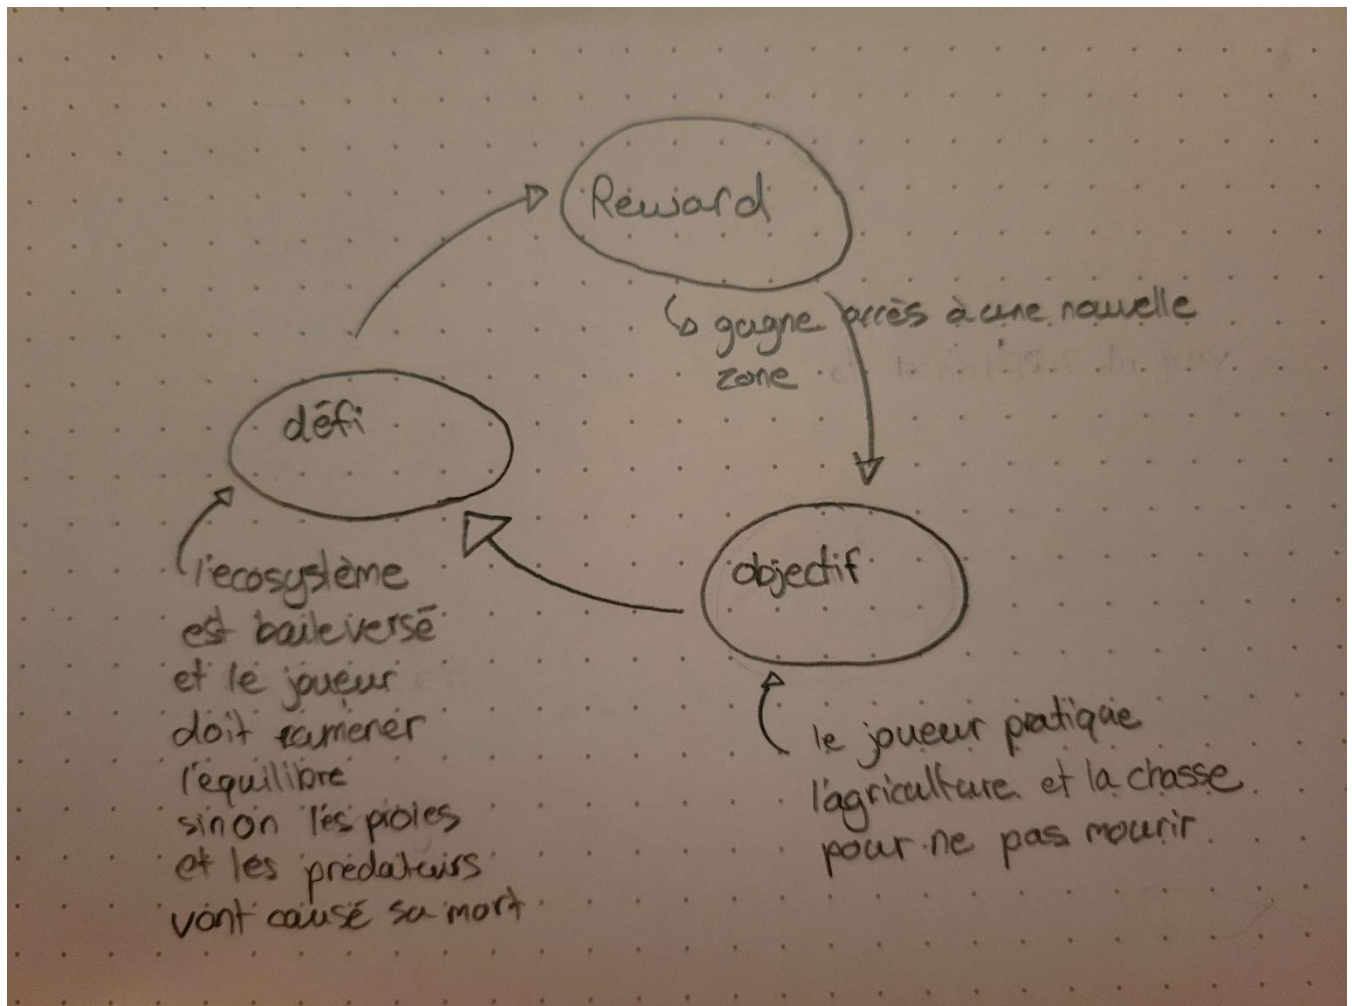 Reward
↳ gagne accès à une nouvelle
zone
défi
objectif
l'ecosystème
est baileversé
et le joueur
doit ramener
l'équilibre
sinon les proies
et les prédateurs
vont causé sa mort
le joueur pratique
l'agriculture et la chasse
pour ne pas mourir